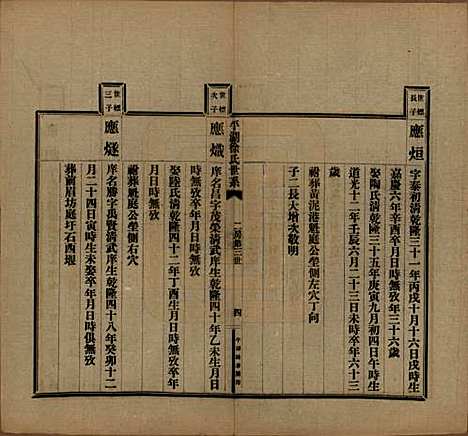 世標
長子
應烜
字泰初清乾隆三十一年丙戌十月十六日戌時生
嘉慶六年辛酉卒月日時無攷年三十六歲
娶陶氏清乾隆三十五年庚寅九月初四日午時生
道光十二年壬辰六月二十三日未時卒年六十三
歲
祔葬黃泥港魁庭公塋側左穴丁向
子二長大增次敬明
世標
次子
應熾
庠名昌字茂榮清武庠生乾隆四十年乙未生月日
時無攷卒年月日時無攷
娶陸氏清乾隆四十二年丁酉生月日時無攷卒年
月日時無攷
祔葬魁庭公塋側右穴
平湖徐氏世系
二房第三世
四
世標
三子
應燧
庠名勝字禹賢清武庠生乾隆四十八年癸卯十二
月二十四日寅時生未娶卒年月日時俱無攷
葬前眉坊庭圩石西堰